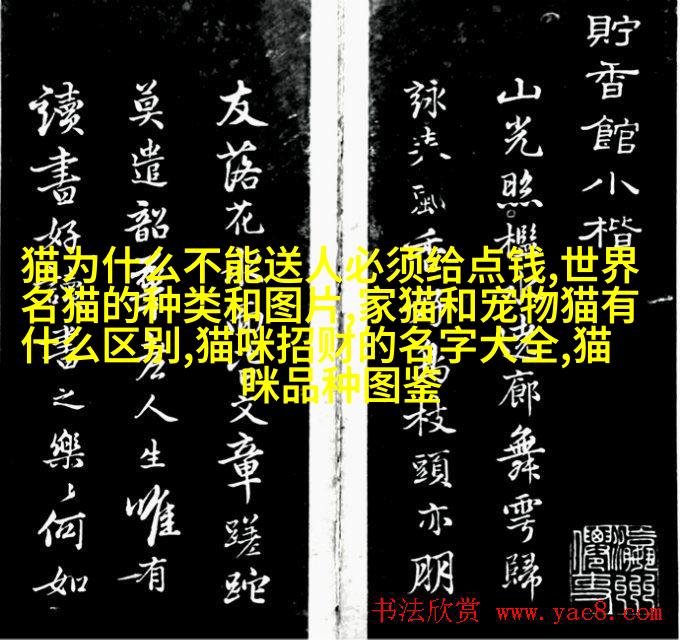 貯香館小楷
山光照檻遶廊舞雩歸
詠春風香鳥枝頭亦朋
友落花文章蹉跎
莫遣韶老人生唯有
讀書好讀書之樂樂何如
猫为什么不能送人必须给点钱,世界
名猫的种类和图片,家猫和宠物猫有
什么区别,猫咪招财的名字大全,猫
咪品种图鉴
书法欣赏 www.yac8.com